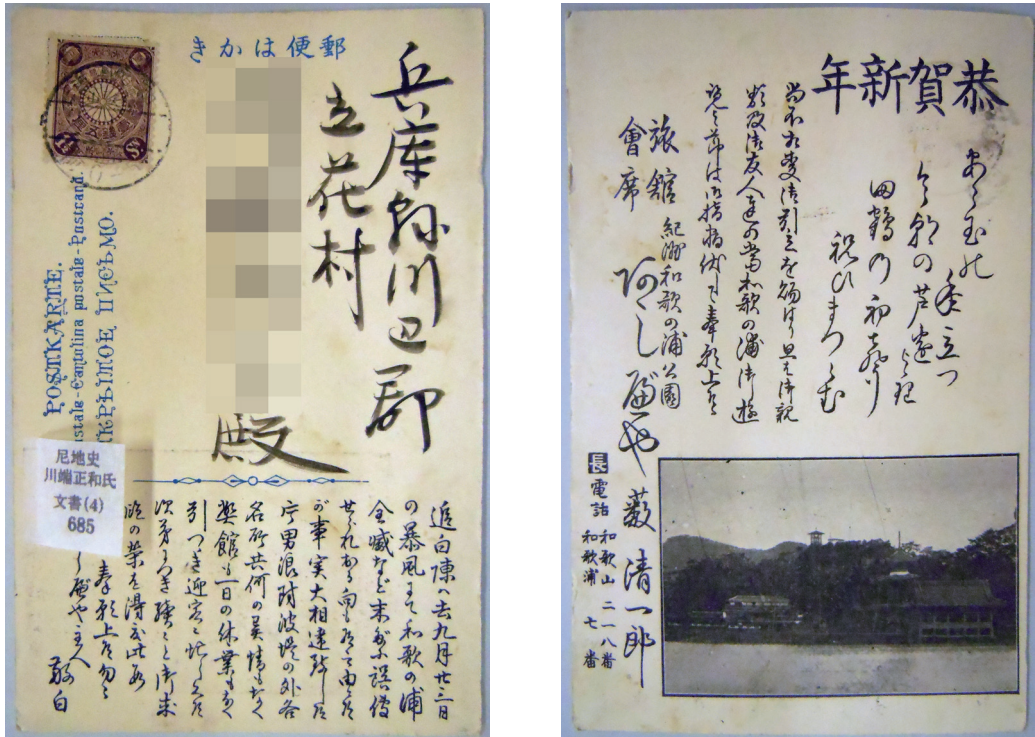 郵便はかき
兵庫縣川辺郡
立花村
殿
POSTKARTE.
stale-Cartolina postale-Postcard.
КРЫТОЕ ПИСЬМО.
尼地史
川端正和氏
文書(4)
685
追白陳ハ去九月廿三日
の暴風にて和歌の浦
全滅など 誤傳
せられ
が事実大相違致し候
男浪防波堤の外各
名所共何の異情もなく
弊館も一日の休業もなく
引つゞき迎客に忙しく候
次第につき續々と御来
臨の榮を得度此段
奉願上候勾々
べや主人 敬白
恭賀新年
あら玉の年立つ
の芦邊より
田鶴の初声
祝ひまつらむ
尚不相変御引立を賜はり且は御親
類及御友人達の當和歌の浦御遊
覧之節は御指揮伏して奉願上候
旅館
會席
紀州和歌の浦公園
阿しべや 薮清一郎
長電話
和歌山 二一八番
和歌浦 七番